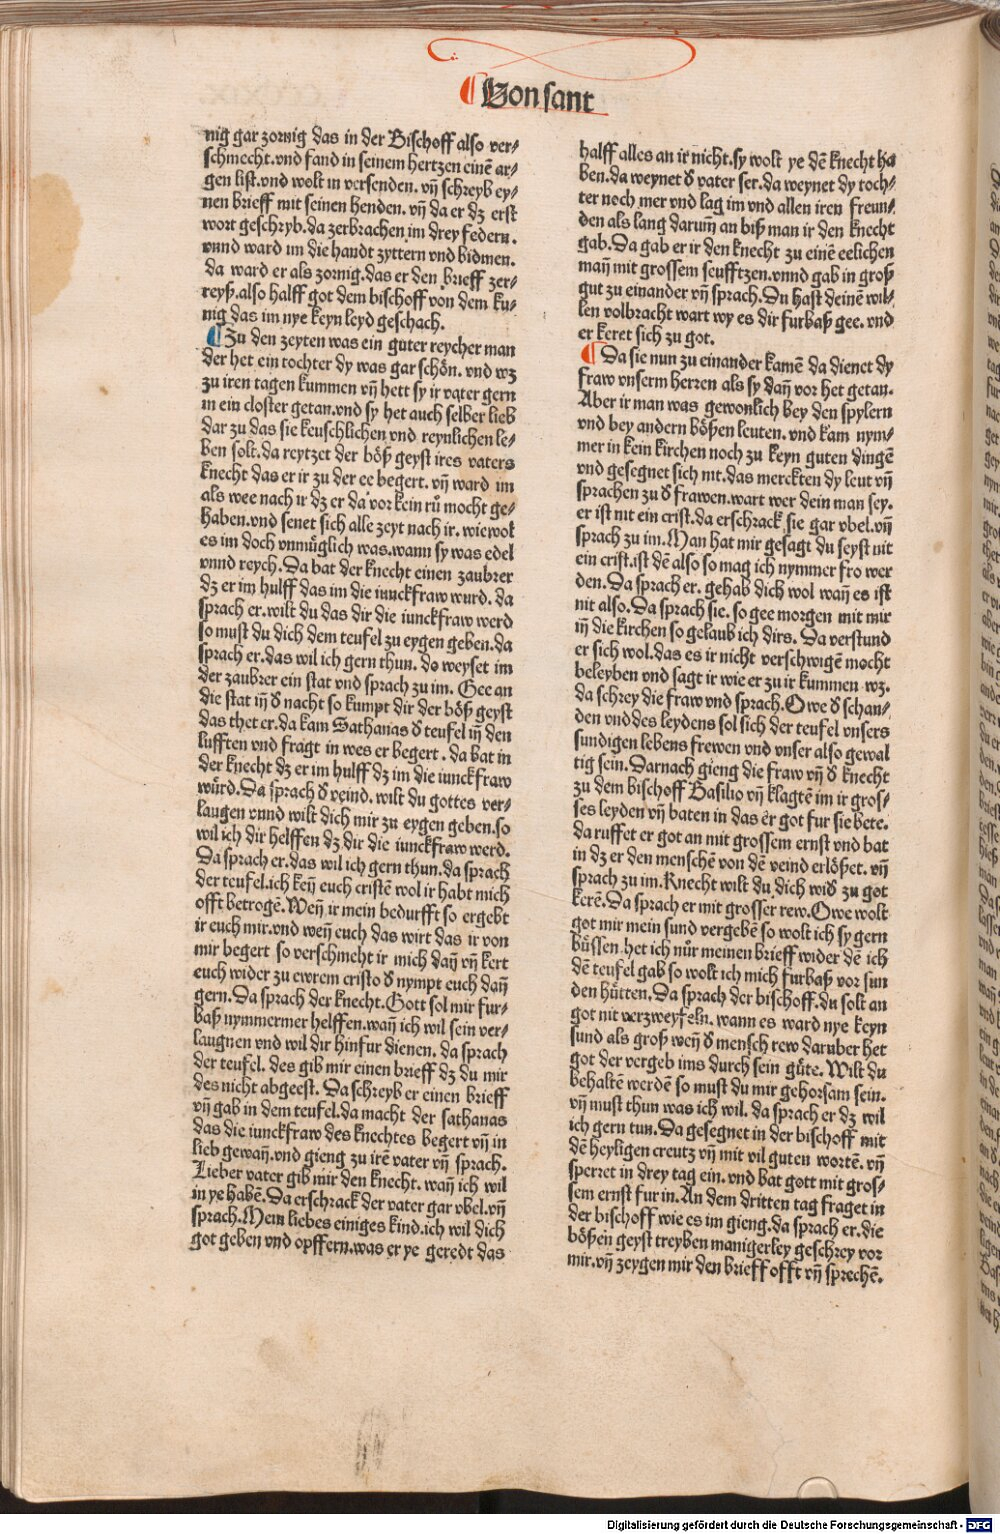 ¶ Von sant
nig gar zornig das in der Bischoff also ver-
schmecht.vnd fand in seinem hertzen einē ar-
gen list.vnd wolt in versenden. vñ schreyb ey-
nen brieff mit seinen henden. vñ da er dz erst
wort geschryb.da zerbrachen im drey federn.
vnnd ward im die handt zyttern vnd bidmen.
da ward er als zornig.das er den brieff zer-
reyß.also halff got dem bischoff von dem ku-
nig das im nye keyn leyd geschach.
¶ Zu den zeyten was ein guter reycher man
der het ein tochter dy was gar schön. vnd wz
zu iren tagen kummen vñ hett sy ir vater gern
in ein closter getan.vnd sy het auch selber lieb
dar zu das sie keuschlichen vnd reynlichen le-
ben solt.da reytzet der böß geyst ires vaters
knecht das er ir zu der ee begert. vñ ward im
als wee nach ir dz er da vor kein rů mocht ge-
haben.vnd senet sich alle zeyt nach ir. wiewol
es im doch vnmüglich was.wann sy was edel
vnnd reych. Da bat der knecht einen zaubrer
dz er im hulff das im die iunckfraw wurd. da
sprach er.wilt du das dir die iunckfraw werd
so must du dich dem teufel zu eygen geben.da
sprach er.das wil ich gern thun. do weyset im
der zaubrer ein stat vnd sprach zu im. Gee an
die stat iñ d nacht so kumpt dir der böß geyst
das thet er.da kam Sathanas d teufel iñ den
lufften vnd fragt in wes er begert . da bat in
der knecht dz er im hulff dz im die iunckfraw
würd. Da sprach d veind. wilt du gottes ver-
laugen vnnd wilt dich mir zu eygen geben.so
wil ich dir helffen dz dir die iunckfraw werd.
Da sprach er.das wil ich gern thun.da sprach
der teufel.ich keñ euch cristē wol ir habt mich
offt betrogē.Weñ ir mein bedurfft so ergebt
ir euch mir.vnd weñ euch das wirt das ir von
mir begert so verschmeht ir mich dañ vñ kert
euch wider zu ewrem cristo d nympt euch dañ
gern. Da sprach der knecht. Gott sol mir fur-
baß nymmermer helffen.wañ ich wil sein ver-
laugnen vnd wil dir hinfur dienen. da sprach
der teufel. des gib mir einen brieff dz du mir
des nicht abgeest. Da schreyb er einen brieff
vñ gab in dem teufel.da macht der sathanas
das die iunckfraw des knechtes begert vñ in
lieb gewañ.vnd gieng zu irē vater vñ sprach.
Lieber vater gib mir den knecht. wañ ich wil
in ye habē. Da erschrack der vater gar vbel.vñ
sprach.Mein liebes einiges kind.ich wil dich
got geben vnd opffern.was er ye geredt das
halff alles an ir nicht.sy wolt ye dē knecht ha
ben.da weynet d vater ser.da weynet dy toch-
ter noch mer vnd lag im vnd allen iren freun-
den als lang darum̄ an biß man ir den knecht
gab. Da gab er ir den knecht zu einē eelichen
mañ mit grossem seufftzen.vnnd gab in groß
gut zu einander vñ sprach. Du hast deinē wil-
len volbracht wart wy es dir furbaß gee. vnd
er keret sich zu got.
¶ Da sie nun zu einander kamē da dienet dy
fraw vnserm herren als sy dañ vor het getan.
Aber ir man was gewonlich bey den spylern
vnd bey andern bößen leuten. vnd kam nym-
mer in kein kirchen noch zu keyn guten dingē
vnd gesegnet sich nit.das merckten dy leut vñ
sprachen zu d frawen.wart wer dein man sey.
er ist nit ein crist.da erschrack sie gar vbel.vñ
sprach zu im. Man hat mir gesagt du seyst nit
ein crist.ist dē also so mag ich nymmer fro wer
den. Da sprach er. gehab dich wol wañ es ist
nit also. Da sprach sie. so gee morgen mit mir
iñ die kirchen so gelaub ich dirs. Da verstund
er sich wol.das es ir nicht verschwigē mocht
beleyben vnd sagt ir wie er zu ir kummen wz.
da schrey die fraw vnd sprach. Owe d schan-
den vnd des leydens sol sich der teufel vnsers
sundigen lebens frewen vnd vnser also gewal
tig sein. Darnach gieng die fraw vñ d knecht
zu dem bischoff Basilio vñ klagtē im ir gros-
ses leyden vñ baten in das er got fur sie bete.
da ruffet er got an mit grossem ernst vnd bat
in dz er den menschē von dē veind erlößet. vñ
sprach zu im. Knecht wilt du dich wid zu got
kerē. Da sprach er mit grosser rew. Owe wolt
got mir mein sund vergebē so wolt ich sy gern
büssen.het ich nür meinen brieff wider dē ich
dē teufel gab so wolt ich mich furbaß vor sun
den hütten. Da sprach der bischoff.du solt an
got nit verzweyfeln. wann es ward nye keyn
sund als groß weñ d mensch rew daruber het
got der vergeb ims durch sein güte. Wilt du
behaltē werdē so must du mir gehorsam sein.
vñ must thun was ich wil. da sprach er dz wil
ich gern tun. Da gesegnet in der bischoff mit
dē heyligen creutz vñ mit vil guten wortē. vñ
sperret in drey tag ein. vnd bat gott mit gros-
sem ernst fur in. An dem dritten tag fraget in
der bischoff wie es im gieng.da sprach er.die
bößen geyst treyben manigerley geschrey vor
mir.vñ zeygen mir den brieff offt vñ sprechē.
Digitalisierung gefördert durch die Deutsche Forschungsgemeinschaft - DFG